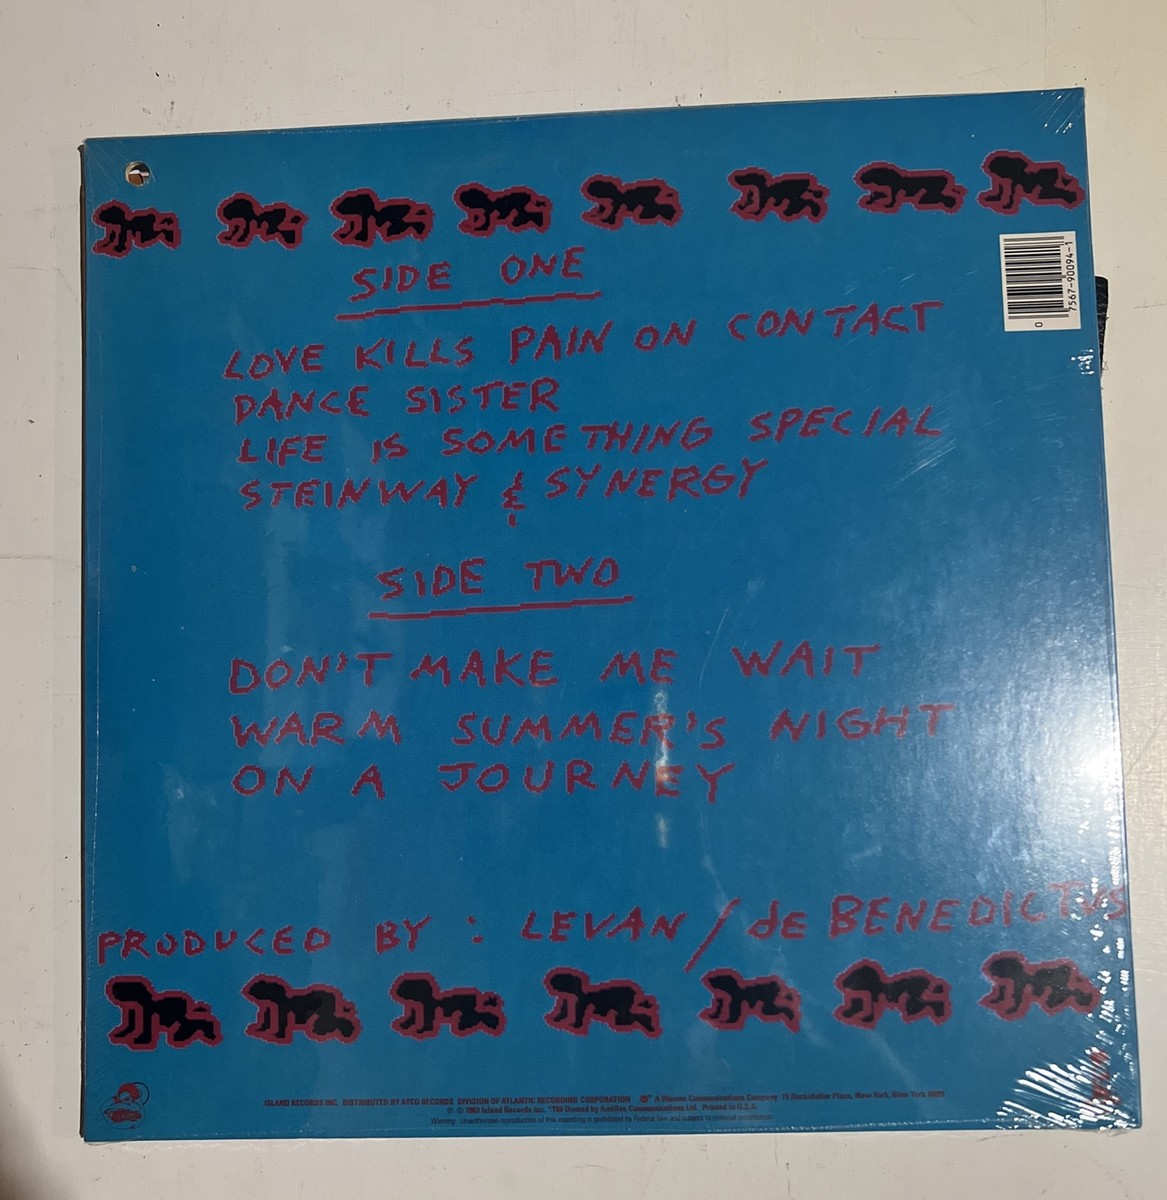 SIDE ONE
LOVE KILLS PAIN ON CONTACT
DANCE SISTER
LIFE IS SOMETHING SPECIAL
STEINWAY & SYNERGY
SIDE TWO
DON'T MAKE ME WAIT
WARM SUMMER'S NIGHT
ON A JOURNEY
PRODUCED BY: LEVAN / dE BENEDICTUS
0 7567-90094-1
ISLAND RECORDS INC. DISTRIBUTED BY ATCO RECORDS DIVISION OF ATLANTIC RECORDING CORPORATION A Warner Communications Company 75 Rockefeller Plaza, New York, New York 10019
℗ © 1983 Island Records Inc. *TM Owned by Antilles Communications Ltd. Printed in U.S.A.
Warning: Unauthorized reproduction of this recording is prohibited by Federal law and subject to criminal prosecution.